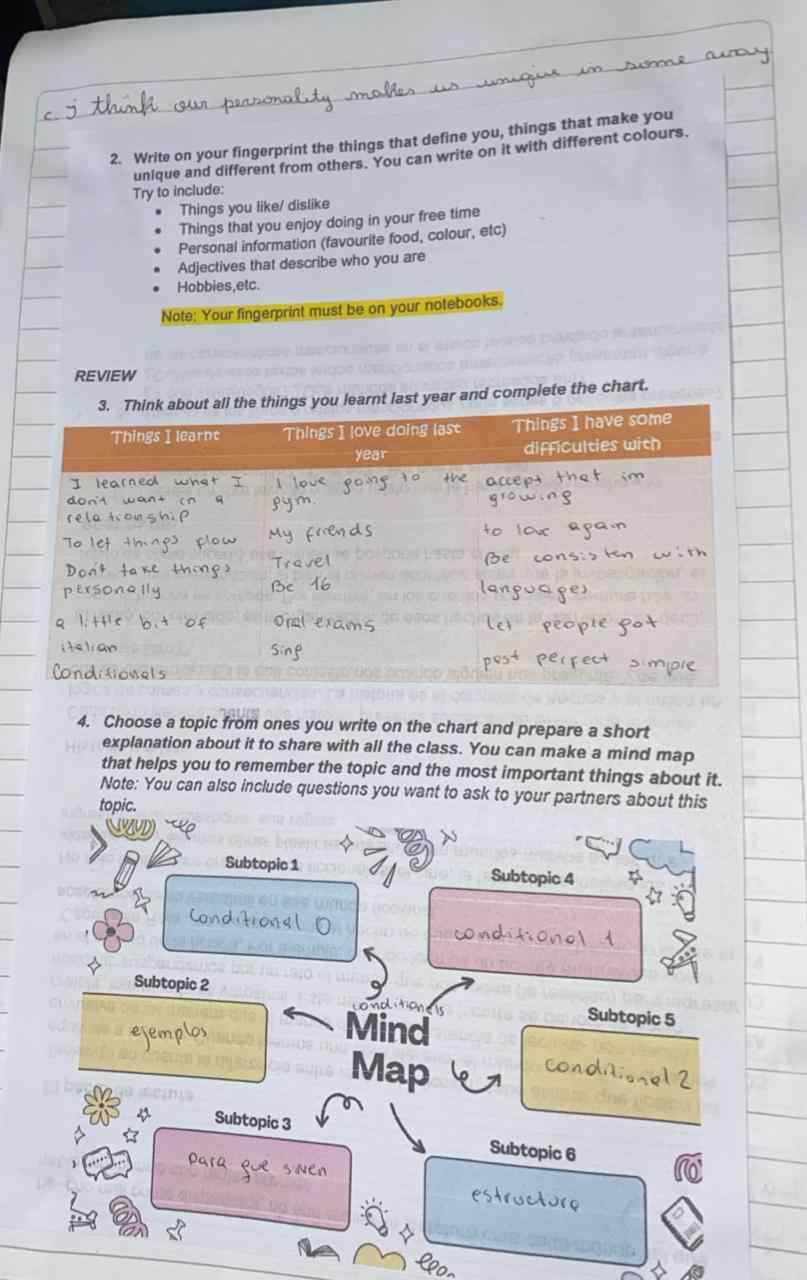 c. j think our personality makes us unique in some away
2. Write on your fingerprint the things that define you, things that make you
unique and different from others. You can write on it with different colours.
Try to include:
• Things you like/ dislike
• Things that you enjoy doing in your free time
• Personal information (favourite food, colour, etc)
• Adjectives that describe who you are
• Hobbies,etc.
Note: Your fingerprint must be on your notebooks.
REVIEW
3. Think about all the things you learnt last year and complete the chart.
Things I learnt
Things I love doing last
year
Things I have some
difficulties with
I learned what I
don't want in a
relationship
To let things flow
Don't take things
personally
a little bit of
italian
Conditionals
I love going to the
gym.
My friends
Travel
Be 16
Oral exams
Sing
accept that im
growing
to love again
Be consisten with
languages
let people got
past perfect simple
4. Choose a topic from ones you write on the chart and prepare a short
explanation about it to share with all the class. You can make a mind map
that helps you to remember the topic and the most important things about it.
Note: You can also include questions you want to ask to your partners about this
topic.
Subtopic 1
Conditional 0
Subtopic 4
conditional 1
Subtopic 2
ejemplos
conditionals
Mind
Map
Subtopic 5
conditional 2
Subtopic 3
para qué sirven
Subtopic 6
estructura